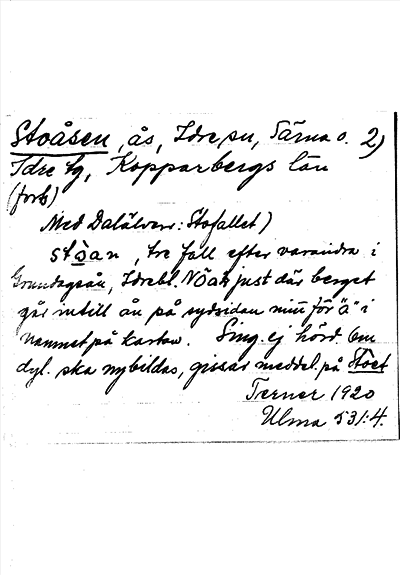 Stoåsen, ås, Idre sn, Särna o. 2)
Idre tg, Kopparbergs län
(forts)
Med Dalälven: Stofallet)
stòan, tre fall efter varandra i
Grundagsån, Idrebl. NÖ ab, just där berget
går intill ån på sydsidan mitt för "ä" i
namnet på kartan. Sing. ej hörd. Om
dyl. ska nybildas, gissar meddel. på Stoet
Terner 1920
Ulma 531:4.